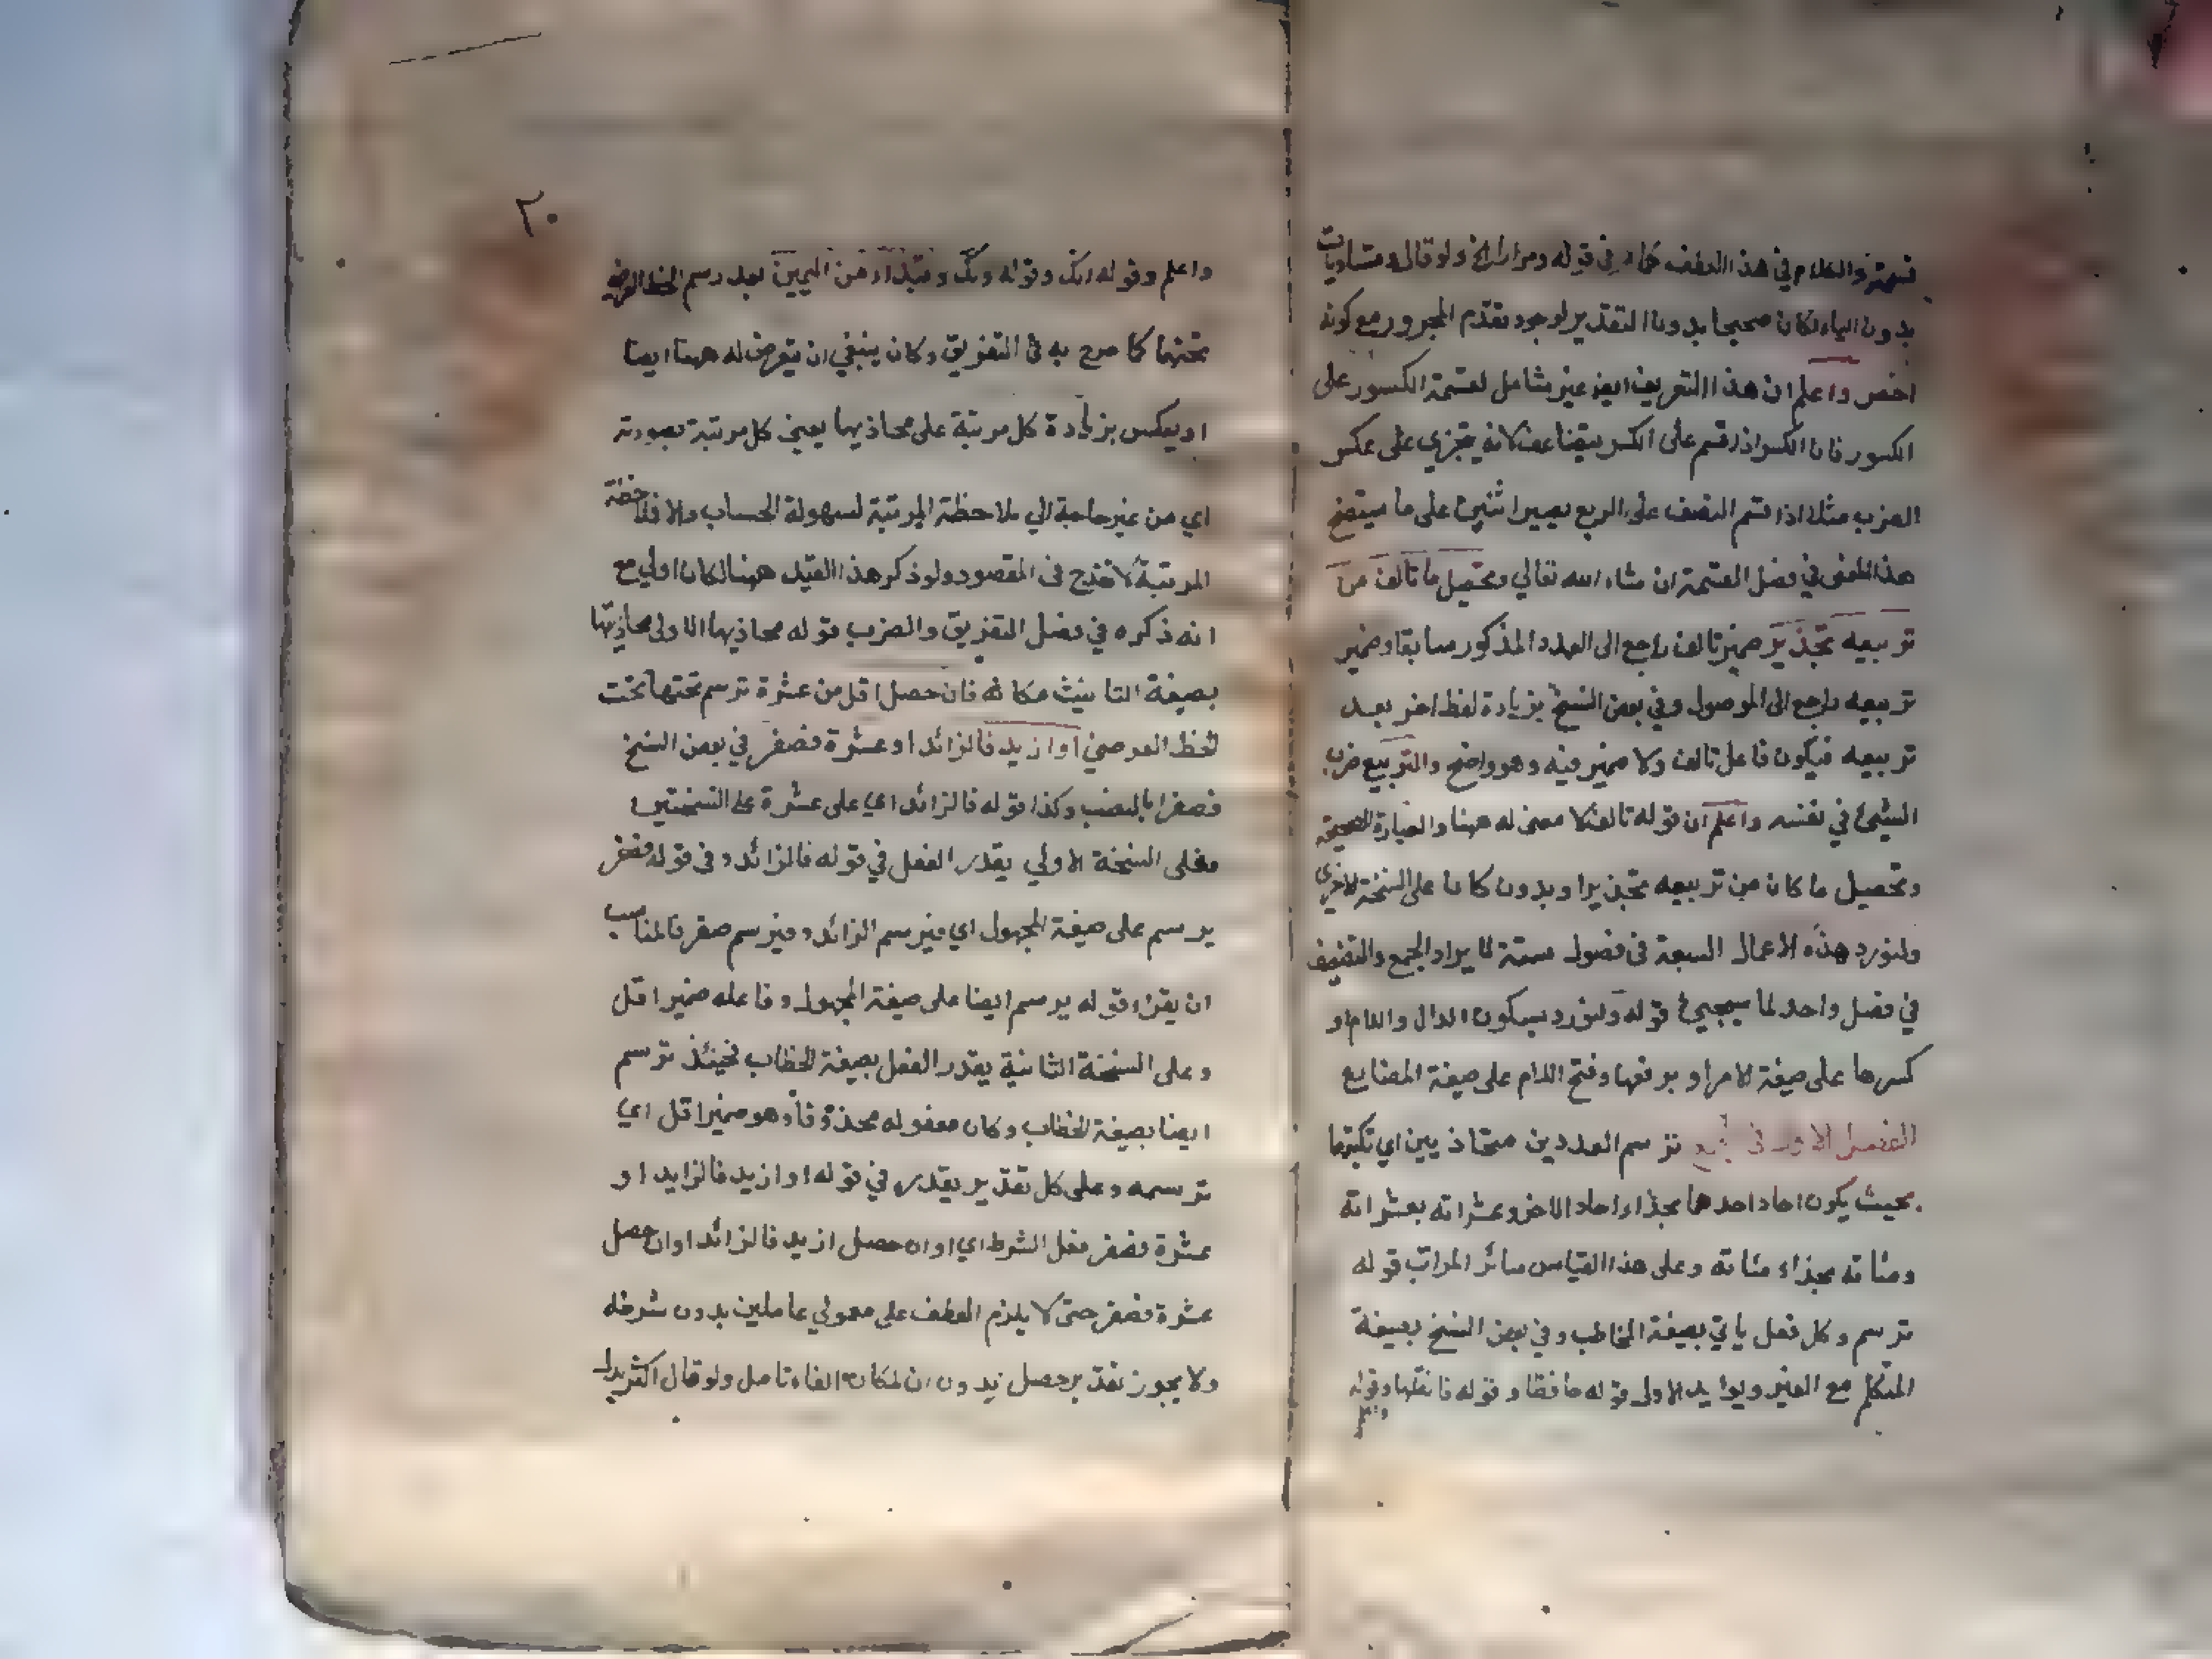 قسمة والكلام في هذا العطف كما في قوله ومرارا الخ ولو قال ومتساويات
بدون الباء لكان صحيحا بدون التقدير لوجود تقدم المجرور مع كونه
اخص واعلم ان هذا التعريف ايضا غير شامل لقسمة الكسور على
الكسور فان الكسر اذا قسم على الكسر يتضاعف لانه يجزي على عكس
الضرب مثلا اذا قسم النصف على الربع يصير اثنين على ما سيتضح
هذا المعنى في فصل القسمة ان شاء الله تعالي وتحصيل ما تالف من
تربيعه تجذير ضمير تالف راجع الى العدد المذكور سابقا وضمير
تربيعه راجع الى الموصول وفي بعض النسخ بزيادة لفظ اخر بعد
تربيعه فيكون فاعل تالف ولا ضمير فيه وهو واضح والتربيع ضرب
الشيئ في نفسه واعلم ان قوله تالف لا معنى له ههنا والعبارة الصحيحة
وتحصيل ما كان من تربيعه تجذيرا وبدون كان على النسخة الاخرى
ولنورد هذه الاعمال السبعة في فصول ستة لايراد الجمع والتضعيف
في فصل واحد لما سيجيئ قوله ولنورد بسكون الدال واللام او
كسرها على صيغة الامر او برفعها وفتح اللام على صيغة المضارع
الفصل الاول في الجمع ترسم العددين متحاذيين اي تكتبهما
بحيث يكون احاد احدهما بحذاء احاد الاخر وعشراته بعشراته
ومئاته بحذاء مئاته وعلى هذا القياس سائر المراتب قوله
ترسم وكل فعل ياتي بصيغة المخاطب وفي بعض النسخ بصيغة
المتكلم مع الغير ويؤيد الاولى قوله حافظا وقوله فانقلها وقوله
واعلم
٢٠
واعلم وقوله انك وقوله ولك وتبتداء من اليمين بعد رسم الخط العرضي
تحتهما كما صرح به في التفريق وكان ينبغي ان يتعرض له ههنا ايضا
او يعكس بزيادة كل مرتبة على محاذيها يعني كل مرتبة بصورته
اي من غير حاجة الي ملاحظة المرتبة لسهولة الحساب والا فملاحظة
المرتبة لا تقدح في المقصود ولو ذكر هذا القيد ههنا لكان اولي مع
انه ذكره في فصل التفريق والضرب قوله محاذيها الاولى محاذيتها
بصيغة التانيث مكانه فان حصل اقل من عشرة ترسم تحتها تحت
الخط العرضي او ازيد فالزائد او عشرة فصفر في بعض النسخ
فصفرا بالنصب وكذا قوله فالزائد اي على عشرة على النسختين
فعلى النسخة الاولي يقدر الفعل في قوله فالزائد وفي قوله فصفر
يرسم على صيغة المجهول اي فيرسم الزائد وفيرسم صفر فالمناسب
ان يقراء قوله يرسم ايضا على صيغة المجهول وفاعله ضمير اقل
وعلى النسخة الثانية يقدر الفعل بصيغة الخطاب فحينئذ ترسم
ايضا بصيغة الخطاب وكان مفعوله محذوفا وهو ضمير اقل اي
ترسمه وعلى كل تقدير يقدر في قوله او ازيد فالزايد او
عشرة فصفر فعل الشرط اي او ان حصل ازيد فالزائد او ان حصل
عشرة فصفر حتى لا يلزم العطف على معمولي عاملين بدون شرطه
ولا يجوز تقدير حصل بدون ان لمكان الفاء تامل ولو قال اكثر بدل